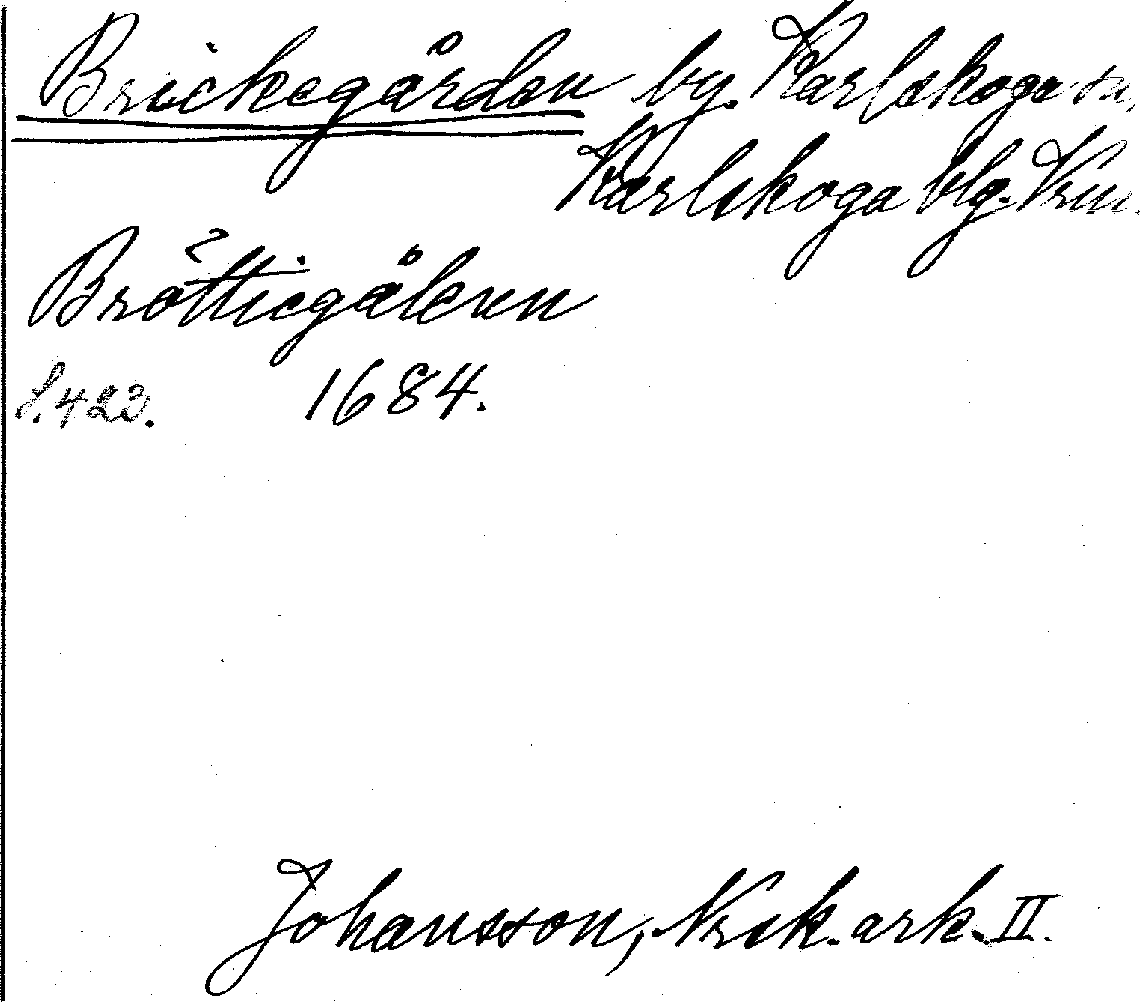 Brickegården by. Karlskoga sn,
Karlskoga blg. Vrm.
Bröttiegålenn
S. 423. 1684.
Johansson, Nrsk. ark. II.